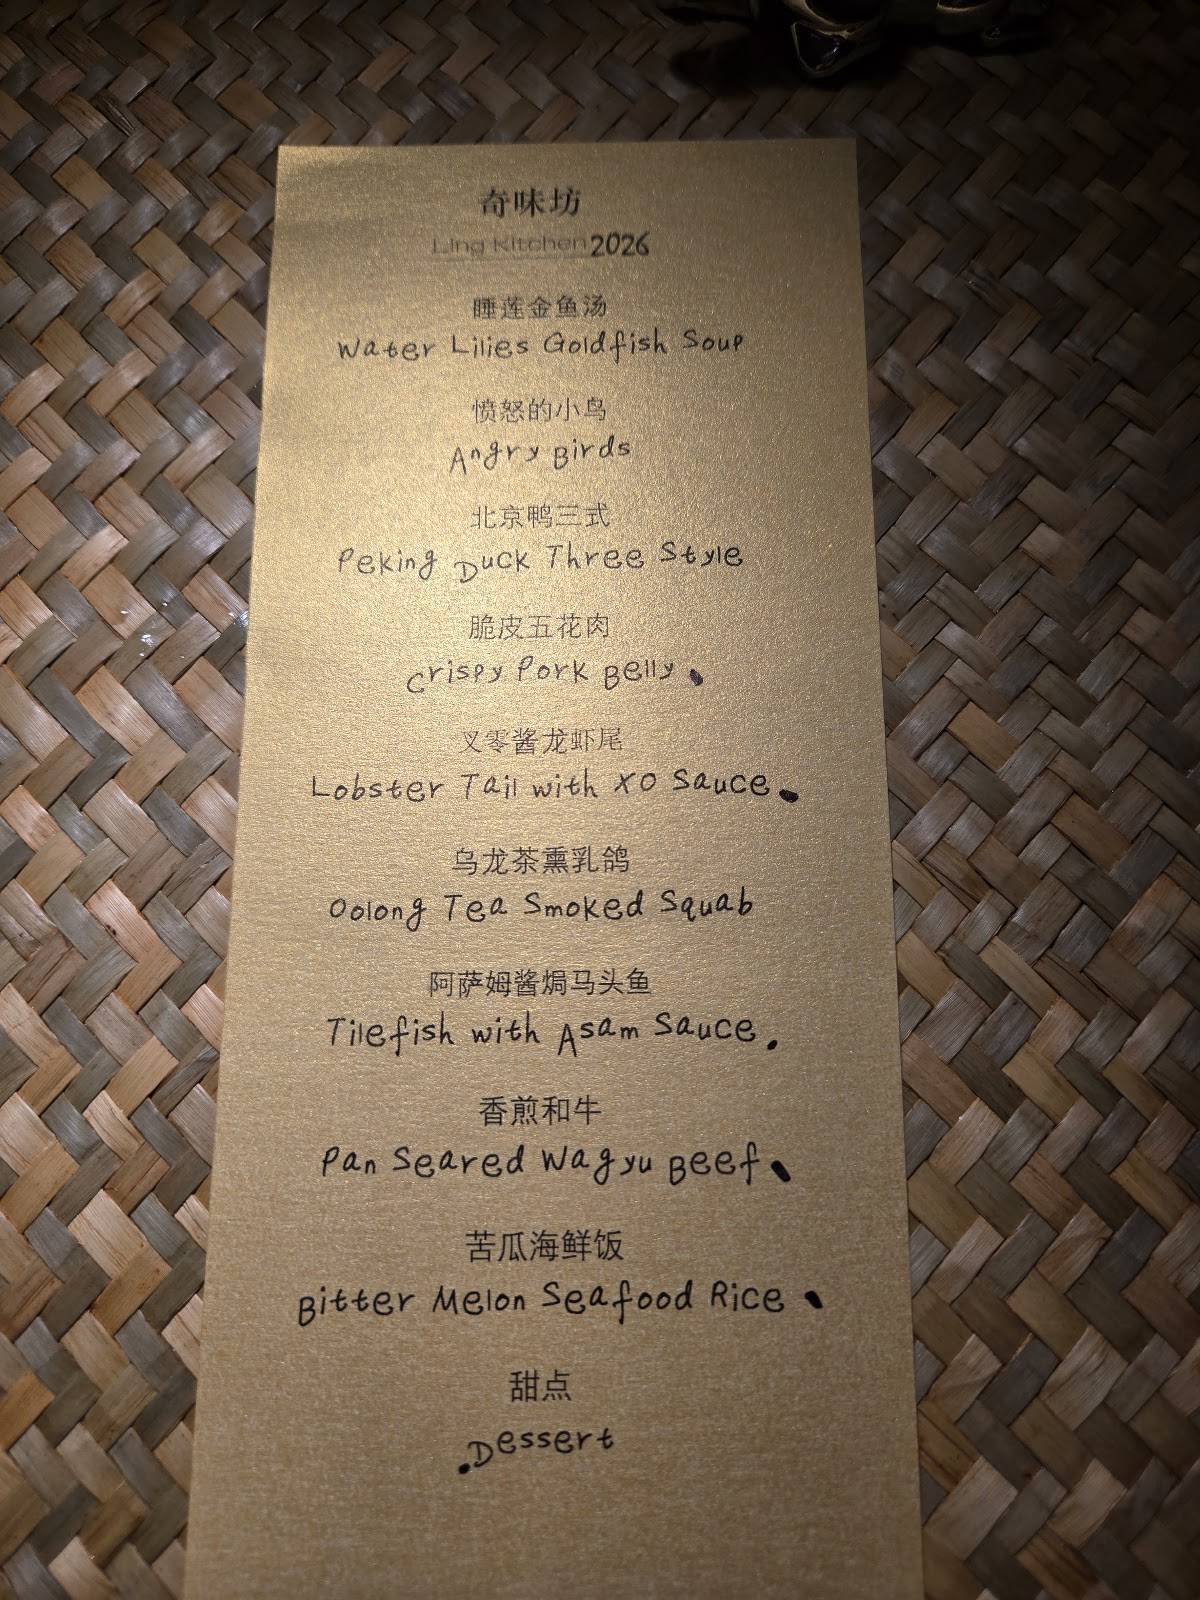 奇味坊
Ling Kitchen 2026
睡莲金鱼汤
Water Lilies Goldfish Soup
愤怒的小鸟
Angry Birds
北京鸭三式
Peking Duck Three Style
脆皮五花肉
Crispy Pork Belly
叉零酱龙虾尾
Lobster Tail with XO Sauce
乌龙茶熏乳鸽
Oolong Tea Smoked Squab
阿萨姆酱焗马头鱼
Tilefish with Asam Sauce.
香煎和牛
Pan Seared Wagyu Beef
苦瓜海鲜饭
Bitter Melon Seafood Rice
甜点
.Dessert